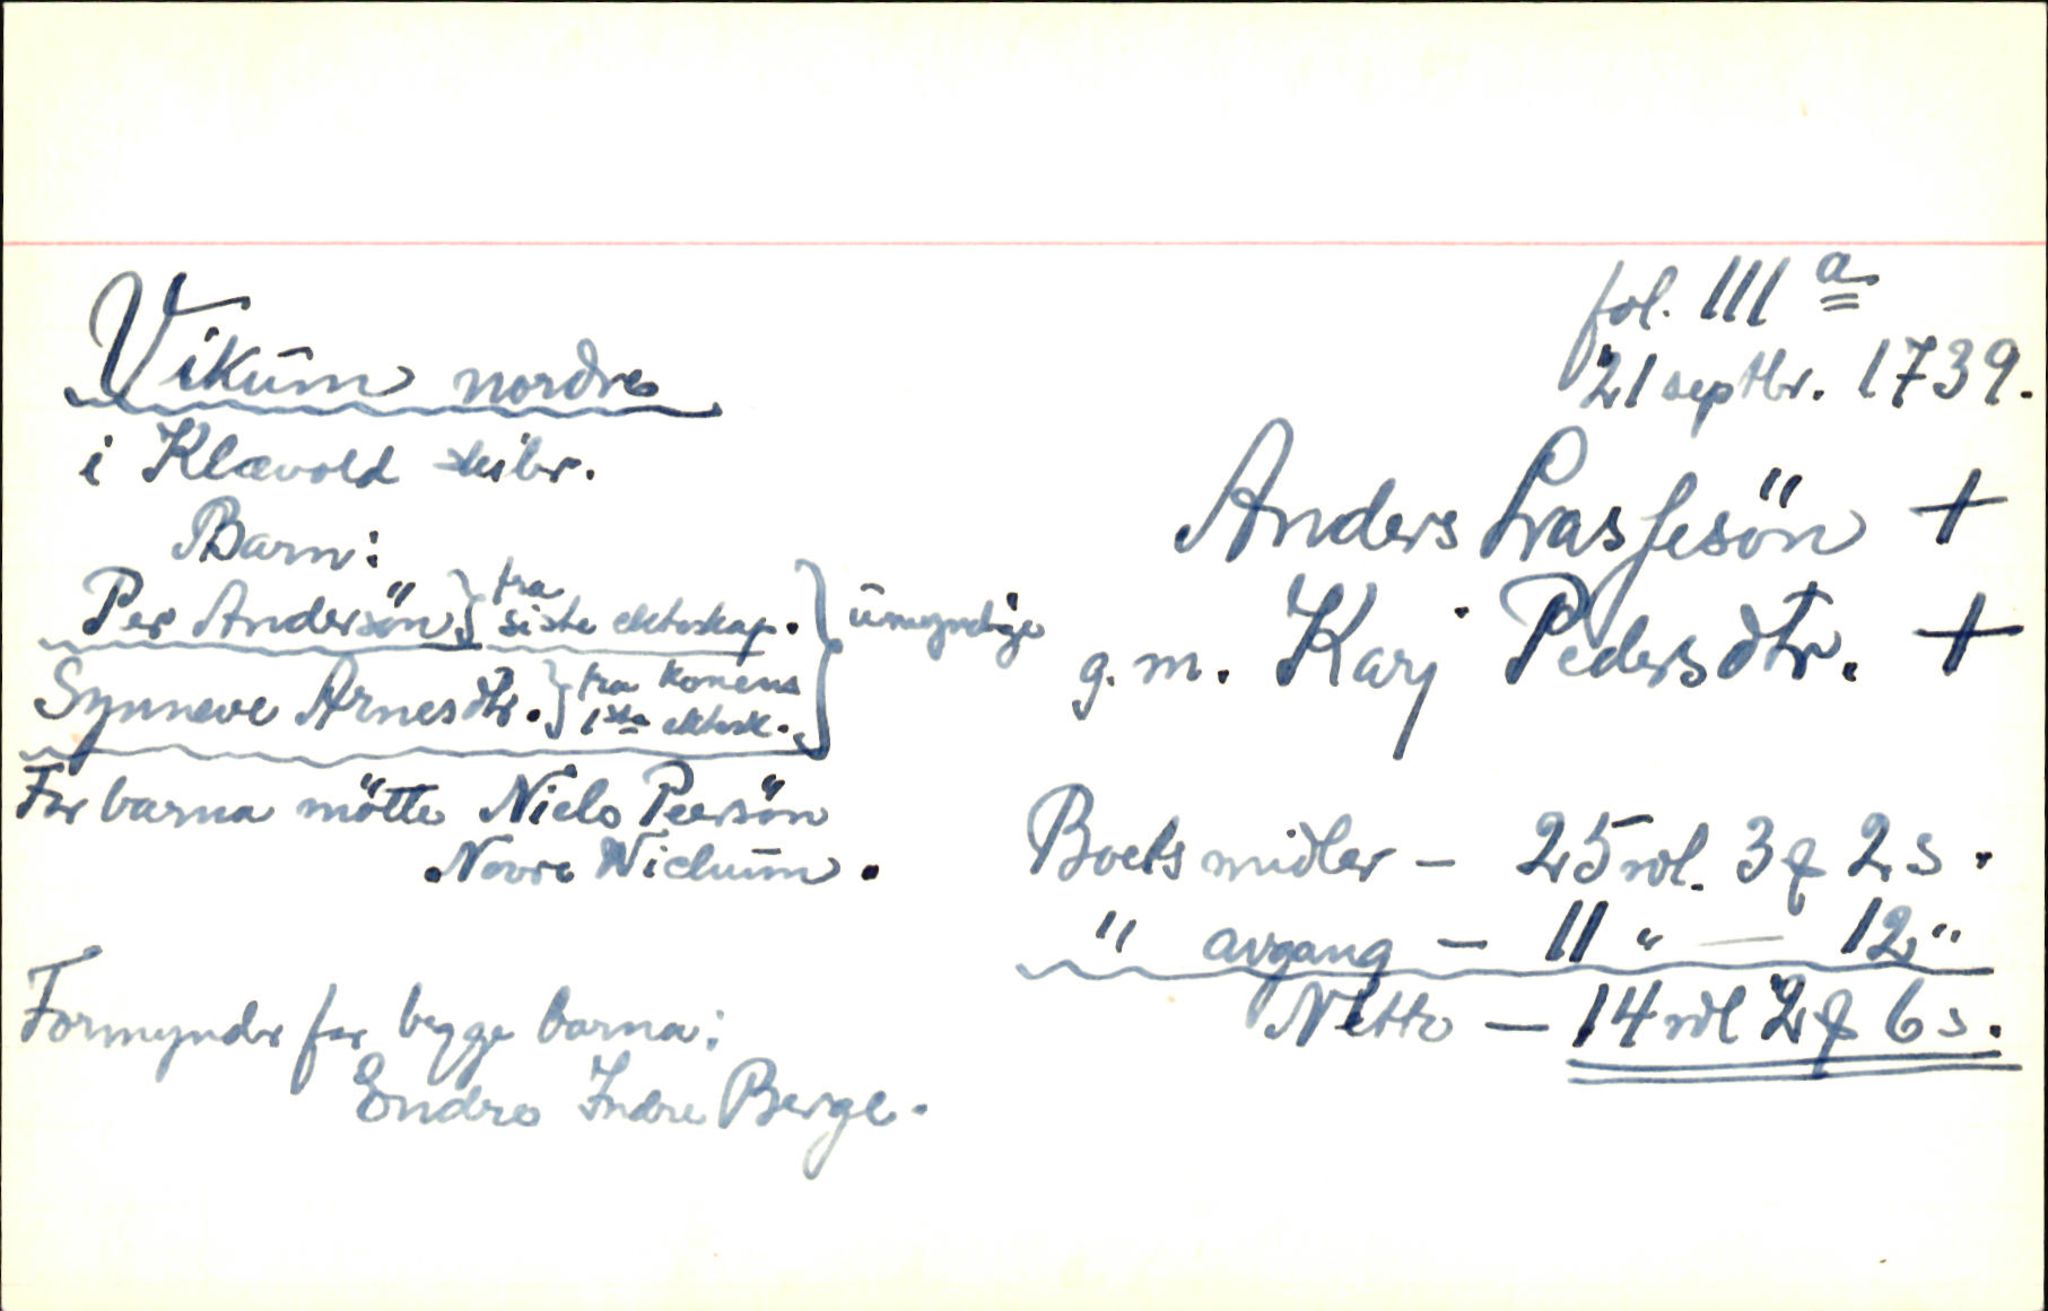 fol. 111 a
21 septbr. 1739.
Vikum nordre
i Klævold skibr.
Barn:
Per Andersön } fra siste ekteskap. } umyndige
Synneve Arnesdtr. } fra konens 1ste ektesk.
For barna mötte Niels Peersön
Novre Wichum.
Formynder for begge barna:
Endre Indre Berge.
Anders Lrasfesön +
g. m. Karj Pedersdtr. +
Boets midler - 25 rdl. 3 ƒ 2 s.
" avgang - 11 " — 12 "
Netto - 14 rdl 2 ƒ 6 s.